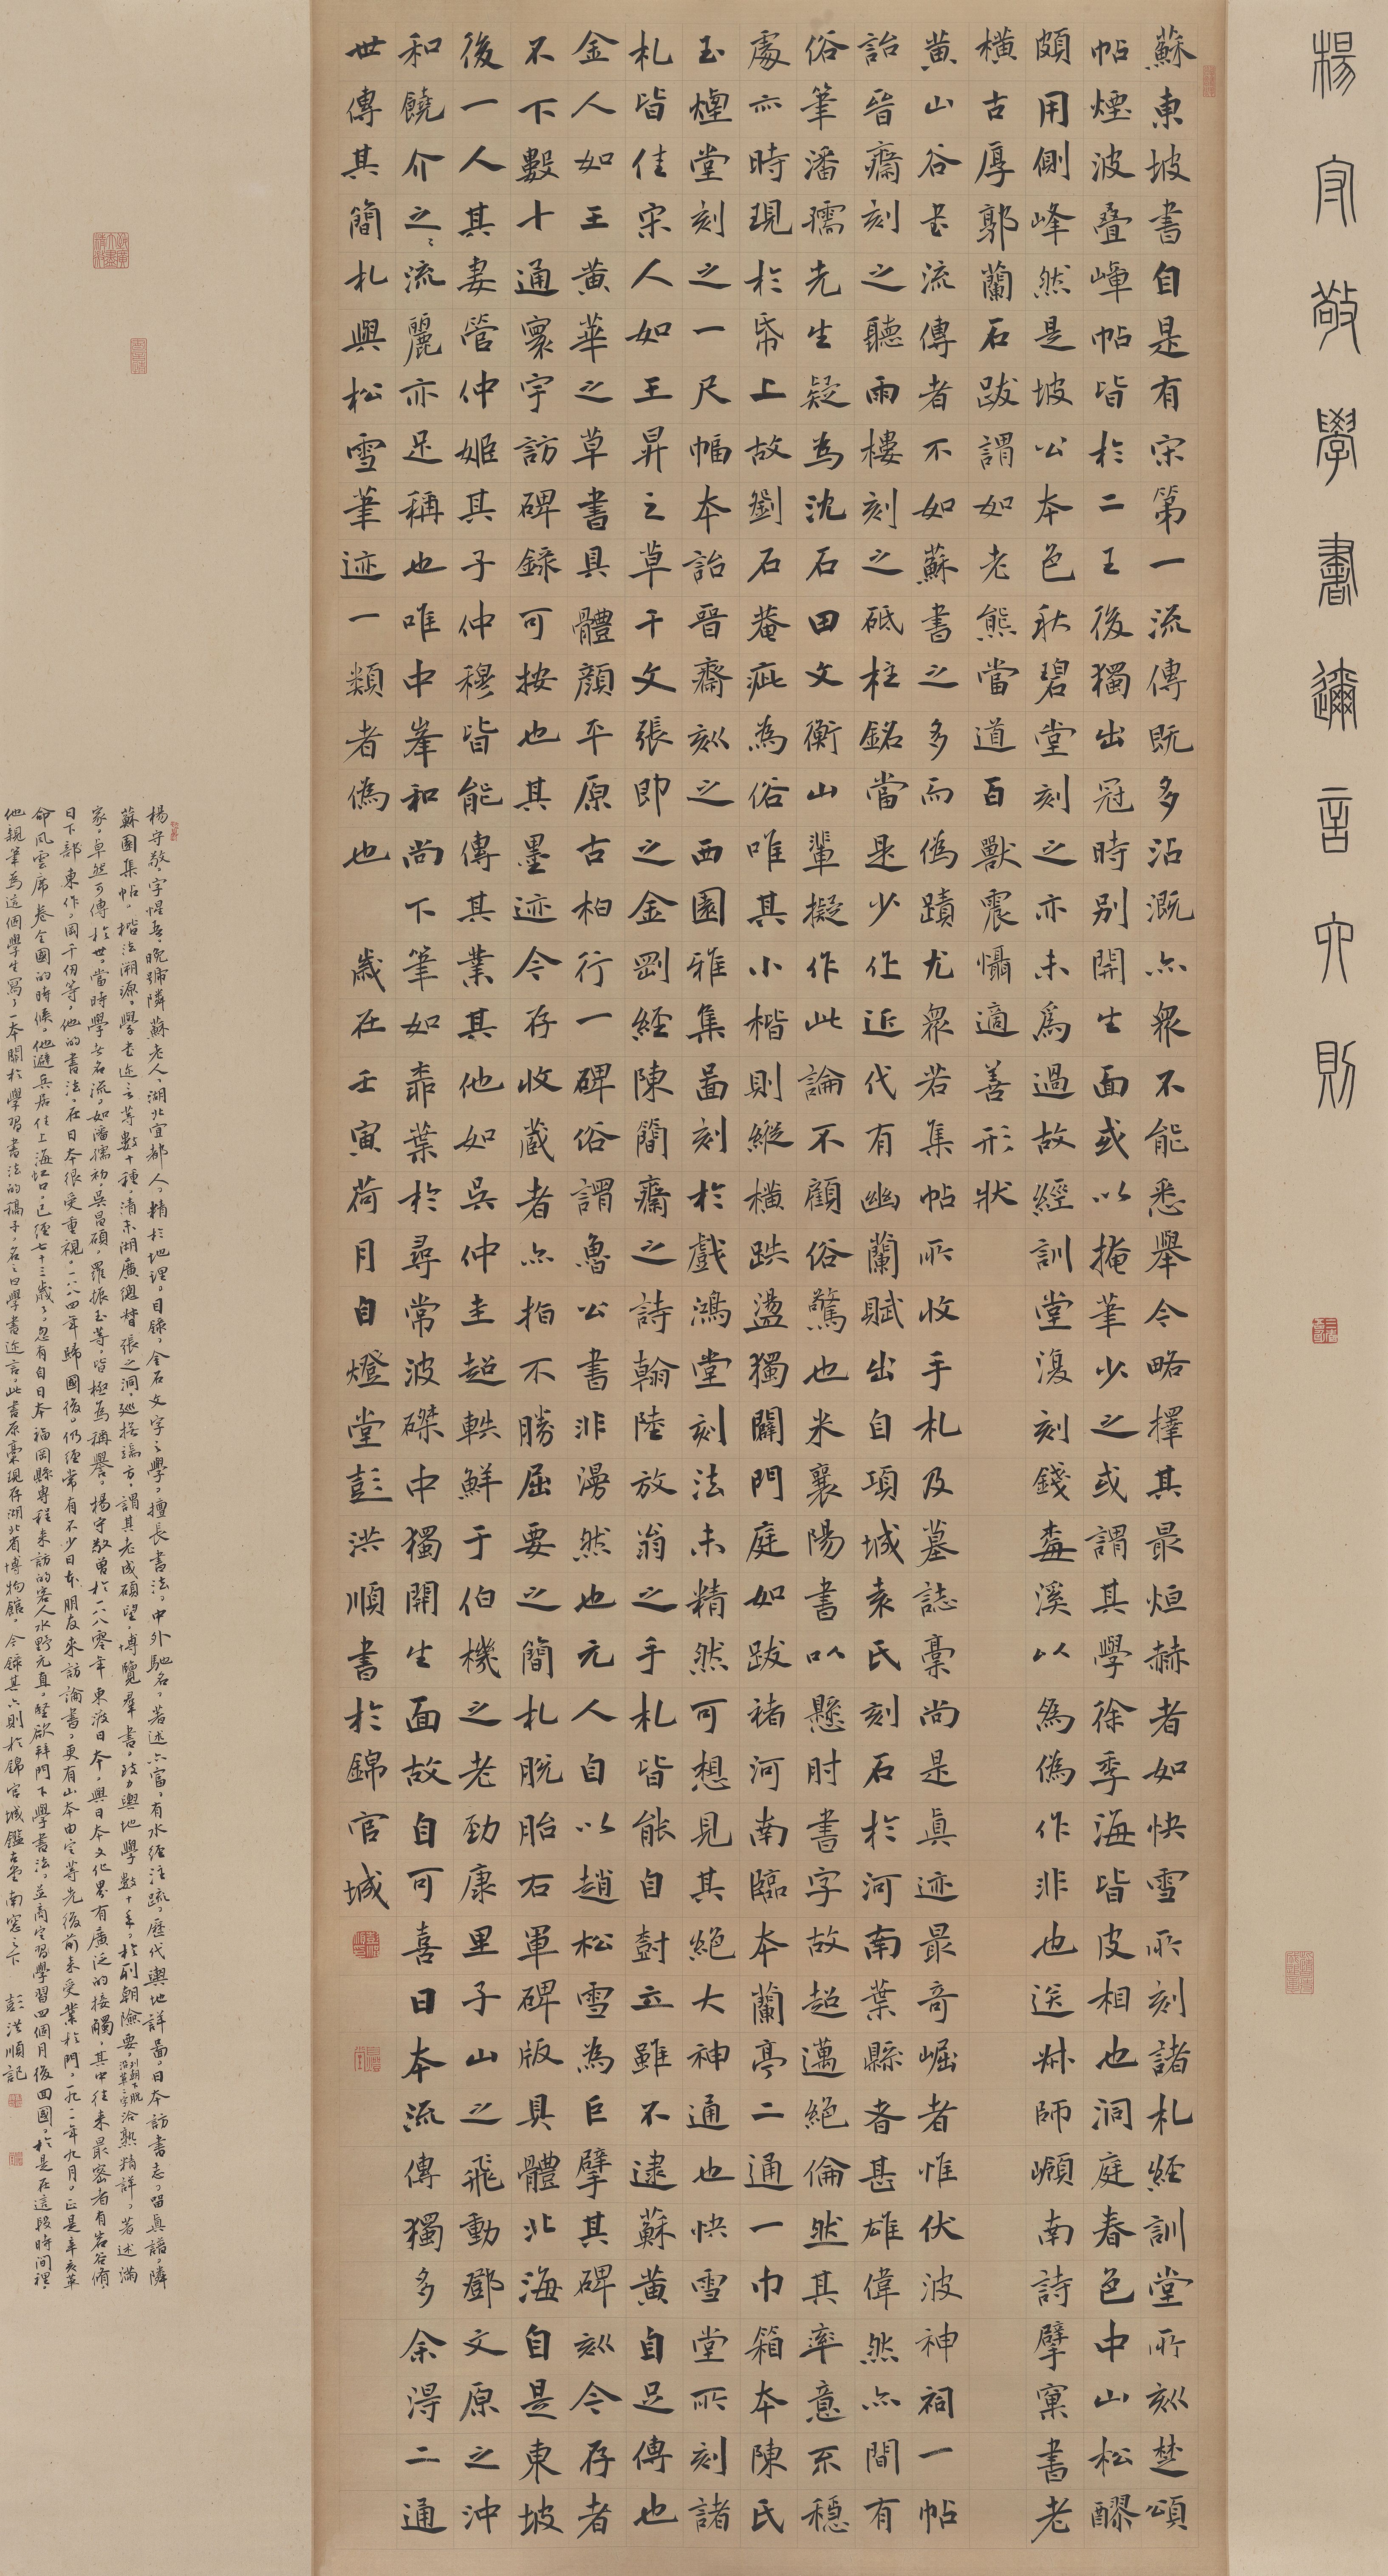 楊守敬學書邇言六則
蘇東坡書自是有宋第一流傳既多沾溉亦衆不能悉舉今略擇其最烜赫者如快雪所刻諸札經訓堂所刻楚頌
帖煙波疊嶂帖皆於二王後獨出冠時別開生面或以掩筆少之或謂其學徐季海皆皮相也洞庭春色中山松醪
頗用側峰然是坡公本色秋碧堂刻之亦未爲過故經訓堂復刻錢楳溪以為偽作非也送師嶺南詩擘窠書老
橫古厚郭蘭石跋謂如老熊當道百獸震懾適善形狀
黄山谷書流傳者不如蘇書之多而偽蹟尤衆若集帖所收手札及墓誌稾尚是真迹最奇崛者惟伏波神祠一帖
詒晉齋刻之聽雨樓刻之砥柱銘當是少作近代有幽蘭賦出自項城袁氏刻石於河南葉縣者甚雄偉然亦間有
俗筆潘孺先生疑為沈石田文衡山輩擬作此論不顧俗驚也米襄陽書以懸肘書字故超邁絕倫然其率意不穩
處亦時現於帋上故劉石菴疵為俗唯其小楷則縱橫跌盪獨闢門庭如跋褚河南臨本蘭亭二通一巾箱本陳氏
玉煙堂刻之一尺幅本詒晉齋刻之西園雅集圖刻於戲鴻堂刻法未精然可想見其絕大神通也快雪堂所刻諸
札皆佳宋人如王昇之草千文張即之金剛經陳簡齋之詩翰陸放翁之手札皆能自樹立雖不逮蘇黄自足傳也
金人如王黄華之草書具體顏平原古柏行一碑俗謂魯公書非漫然也元人自以趙松雪為巨擘其碑刻今存者
不下數十通寰宇訪碑錄可按也其墨迹今存收藏者亦指不勝屈要之簡札脫胎右軍碑版具體北海自是東坡
後一人其妻管仲姬其子仲穆皆能傳其業其他如吳仲圭超軼鮮于伯機之老勁康里子山之飛動鄧文原之沖
和饒介之々流麗亦足稱也唯中峯和尚下筆如柰葉於尋常波磔中獨開生面故自可喜日本流傳獨多余得二通
世傳其簡札與松雪筆迹一類者偽也 歲在壬寅荷月自燈堂彭洪順書於錦官城
楊守敬，字惺吾，晚號隣蘇老人，湖北宜都人，精於地理。目錄，金石文字之學。擅長書法，中外馳名，著述亦富，有水經注疏，歷代輿地詳圖，日本訪書志，留真譜，隣
蘇園集帖，楷法溯源，學書迩言等數十種，清末湖廣總督張之洞，廵撫端方，謂其老成碩望，博覽羣書，致力輿地學數十年，於列朝險要，洽熟精詳，著述滿
家，卓然可傳於世。當時學者名流，如潘孺初，吳昌碩，羅振玉等，皆極為稱譽。楊守敬曽於一八八零年東渡日本，與日本文化界有廣泛的接觸，其中往來最密者有岩谷脩
日下部東作，岡千仞等，他的書法，在日本很受重視，一八八四年歸國後，仍經常有不少日本朋友來訪論書，更有山本由定等先後前來受業於門，一九一一年九月，正是辛亥革
命風雲席卷全國的時候，他避兵居住上海虹口，已經七十三歲了，忽有自日本福岡縣專程來訪的客人水野元直，堅欲拜門下學書法，並商定習學習四個月後回國，於是在這段時间裡，
他親筆為這個學生寫了一本關於學習書法的稿子，名之曰學書迩言，此書原稾現存湖北省博物館，今錄其六則於錦官城鑑古堂南窗之下 彭洪順記